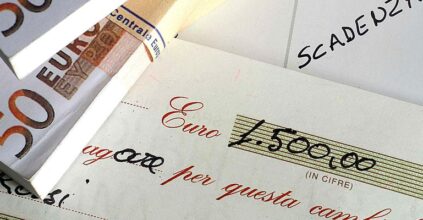 50
50 EURO
ΕΥΡΩ
Centrale Euro
50
SCADENZA
Euro 1.500,00
(IN CIFRE)
pagare per questa camb